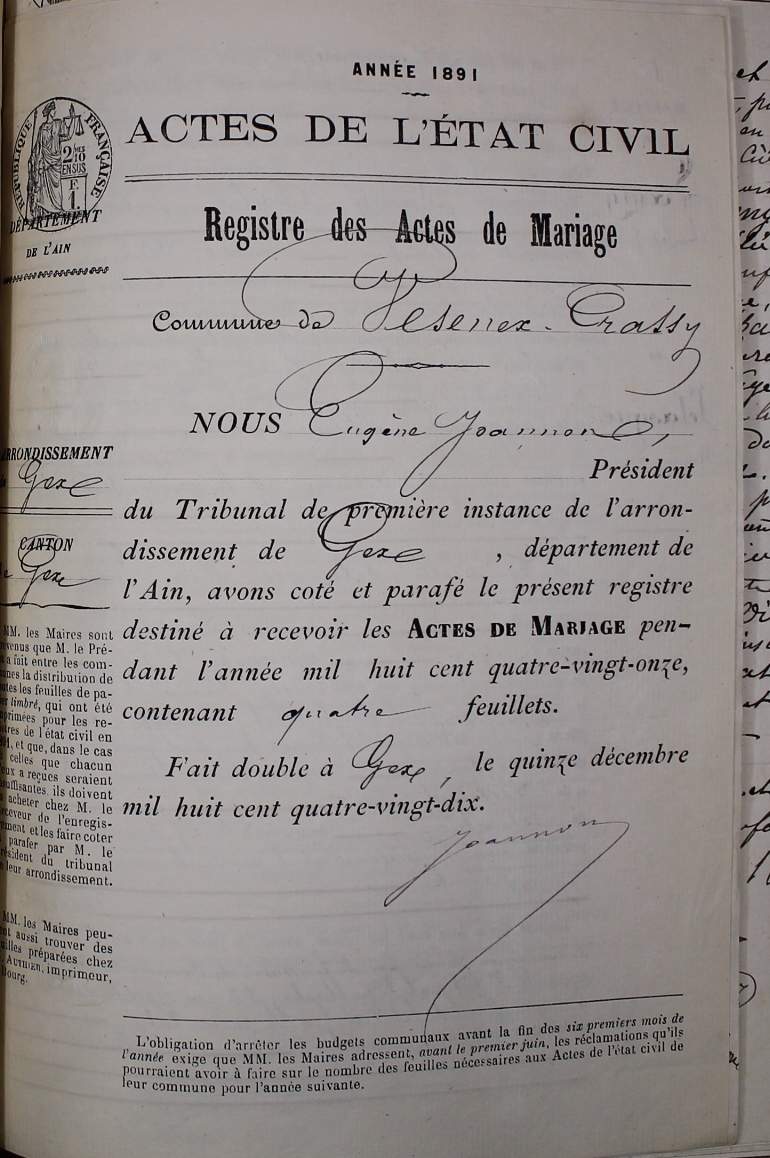 ANNÉE 1891
ACTES DE L'ÉTAT CIVIL
RÉPUBLIQUE FRANÇAISE
2/10 EN SUS
F. 1.
DÉPARTEMENT
DE L'AIN
Registre des Actes de Mariage
Commune de Vesenex-Crassy
NOUS Eugène Joannon,
Président
du Tribunal de première instance de l'arron-
dissement de Gex, département de
l'Ain, avons coté et parafé le présent registre
destiné à recevoir les ACTES DE MARIAGE pen-
dant l'année mil huit cent quatre-vingt-onze,
contenant quatre feuillets.
Fait double à Gex, le quinze décembre
mil huit cent quatre-vingt-dix.
Joannon
ARRONDISSEMENT
Gex
CANTON
Gex
MM. les Maires sont
que M. le Pré-
a fait entre les com-
la distribution de
les feuilles de pa-
timbré, qui ont été
pour les re-
de l'état civil en
et que, dans le cas
celles que chacun
a reçues seraient
ils doivent
acheter chez M. le
de l'enregis-
et les faire coter
parafer par M. le
du tribunal
leur arrondissement.
MM. les Maires peu-
aussi trouver des
préparées chez
imprimeur,
L'obligation d'arrêter les budgets communaux avant la fin des six premiers mois de
l'année exige que MM. les Maires adressent, avant le premier juin, les réclamations qu'ils
pourraient avoir à faire sur le nombre des feuilles nécessaires aux Actes de l'état civil de
leur commune pour l'année suivante.